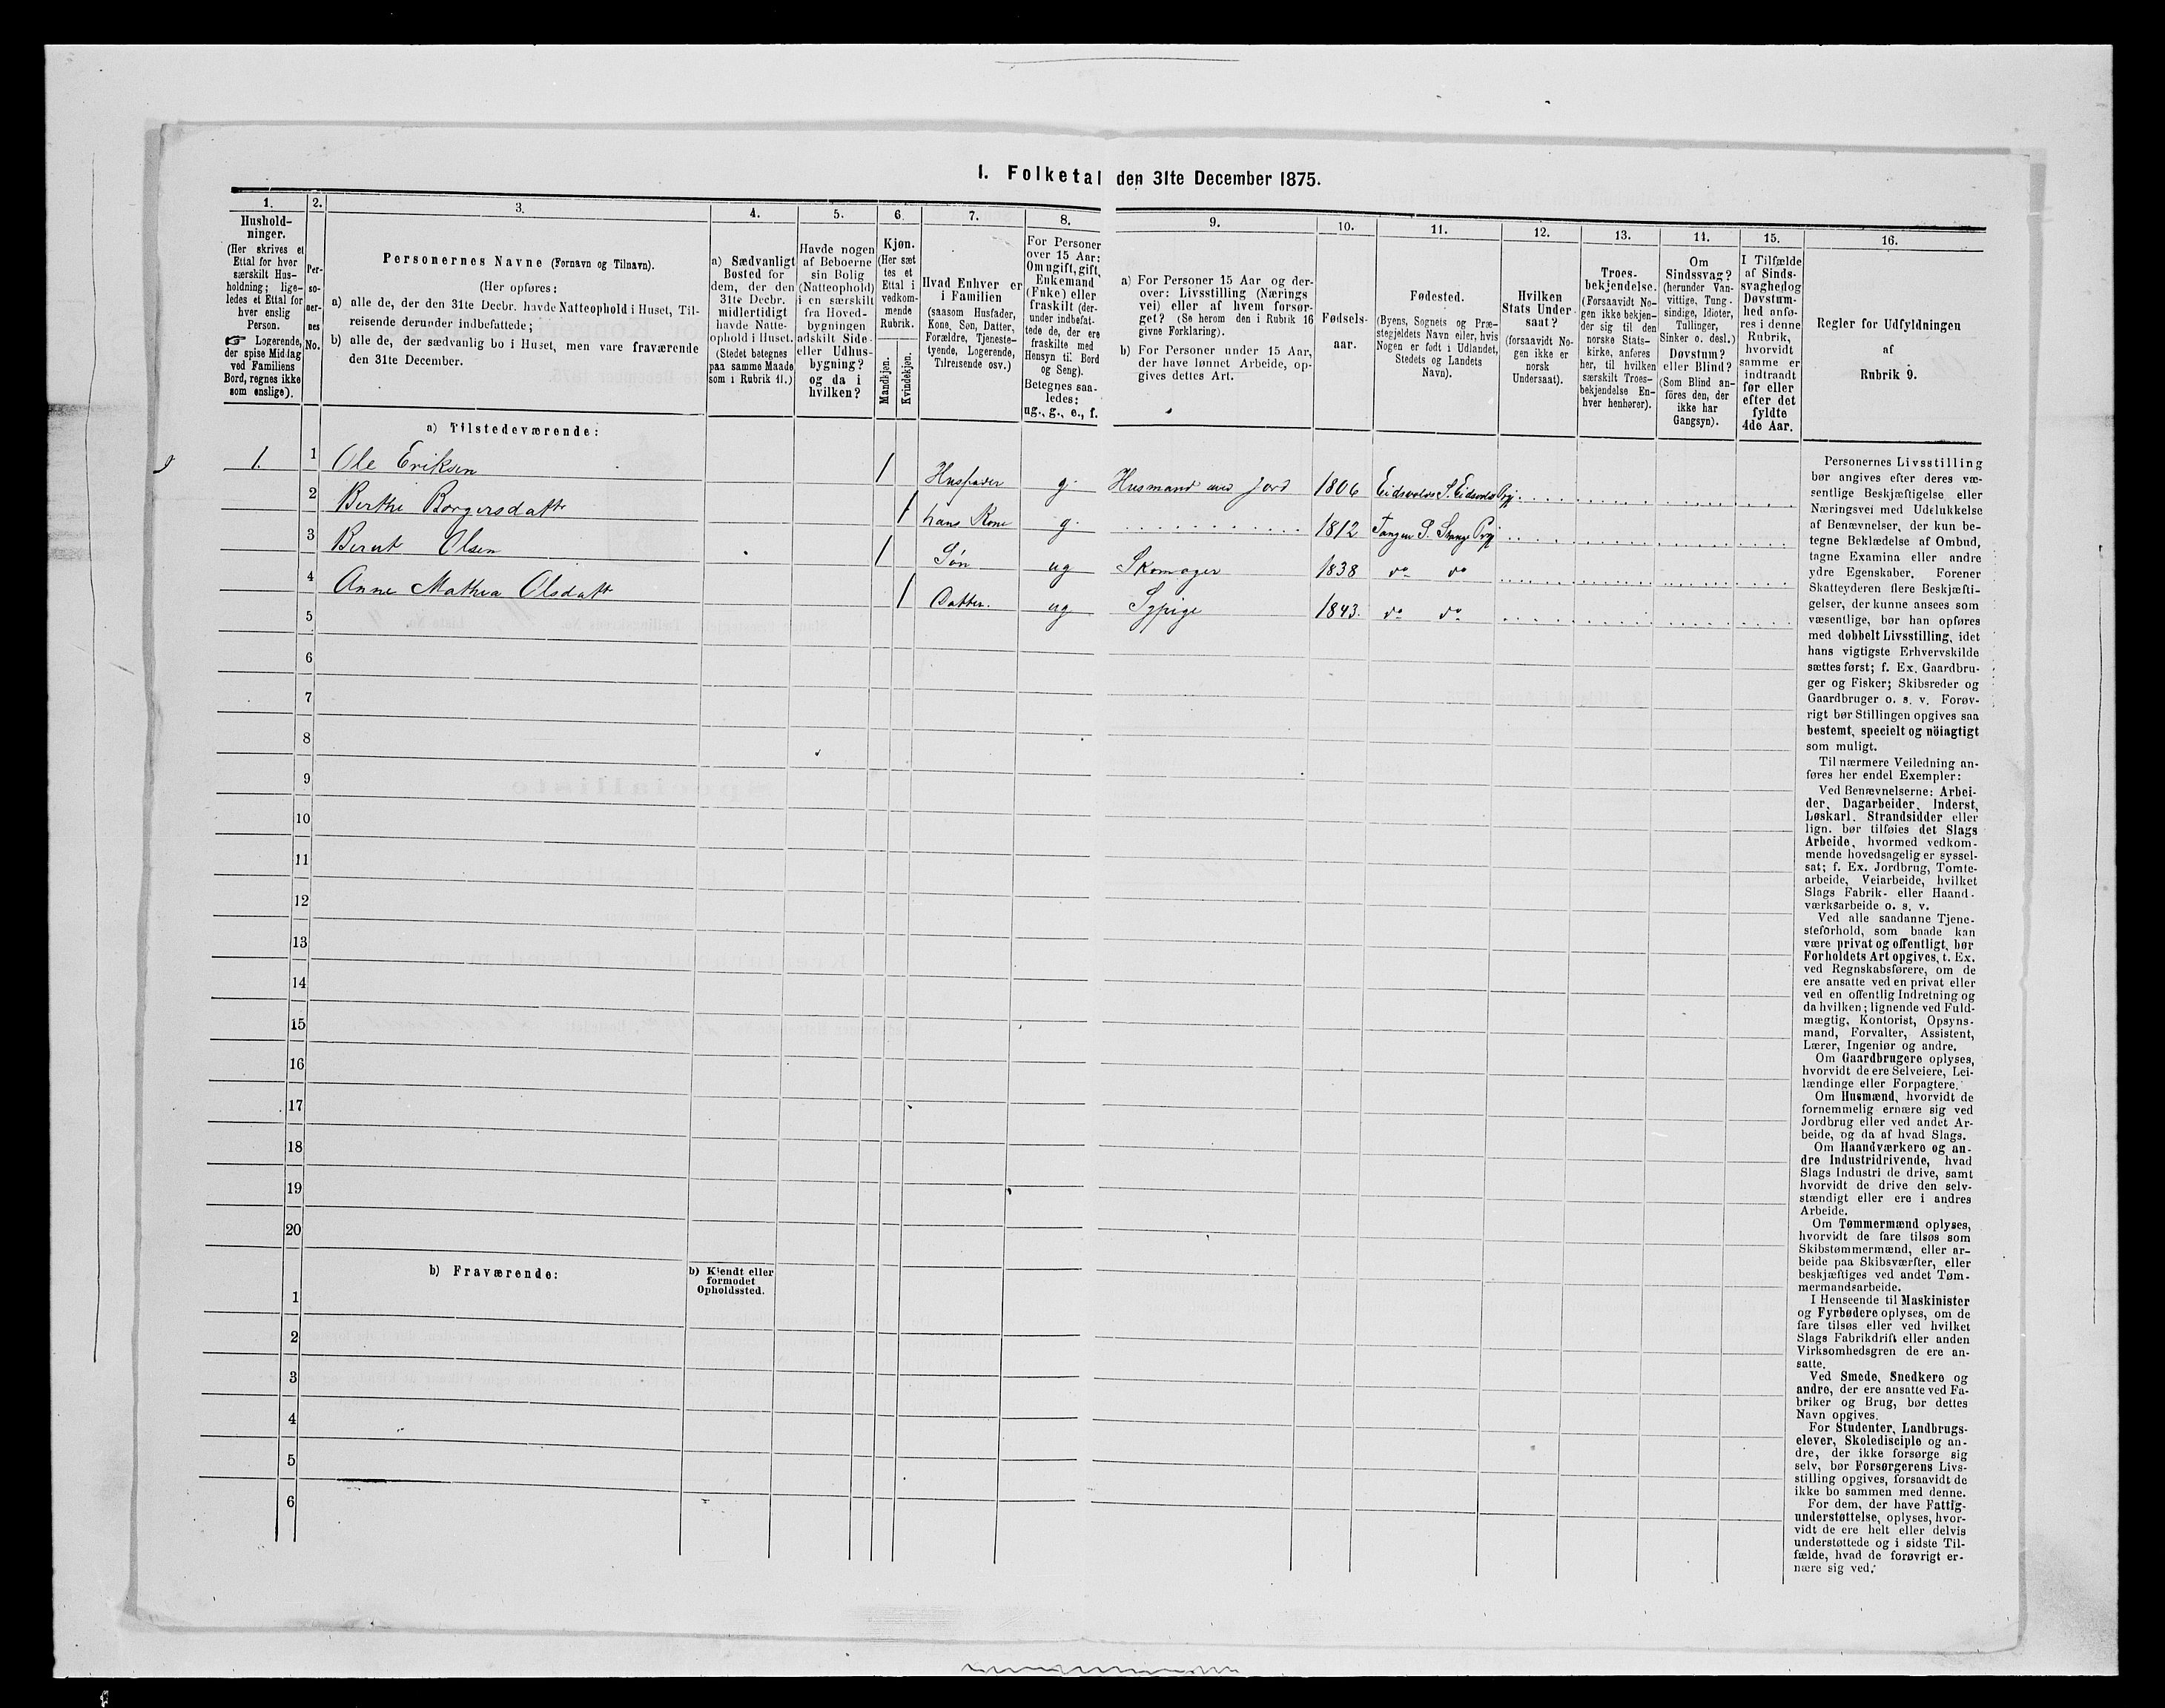 I. Folketal den 31te December 1875.
1. 2. 3. 4. 5. 6. 7. 8. 9. 10. 11. 12. 13. 14. 15. 16.
Hushold-
ninger.
(Her skrives et
Ettal for hver
særskilt Hus-
holdning; lige-
ledes et Ettal for
hver enslig
Person.
☞ Logerende,
der spise Middag
ved Familiens
Bord, regnes ikke
som enslige).
Per-
so-
ner-
nes
No.
Personernes Navne (Fornavn og Tilnavn).
(Her opføres:
a) alle de, der den 31te Decbr. havde Natteophold i Huset, Til-
reisende derunder indbefattede;
b) alle de, der sædvanlig bo i Huset, men vare fraværende
den 31te December.
a) Sædvanligt
Bosted for
dem, der den
31te Decbr.
midlertidigt
havde Natte-
ophold i Huset.
(Stedet betegnes
paa samme Maade
som i Rubrik 11.)
Havde nogen
af Beboerne
sin Bolig
(Natteophold)
i en særskilt
fra Hoved-
bygningen
adskilt Side-
eller Udhus-
bygning?
og da i
hvilken?
Kjøn.
(Her sæt
tes et
Ettal i
vedkom-
mende
Rubrik.
Mandkjøn.
Kvindekjøn.
Hvad Enhver er
i Familien
(saasom Husfader,
Kone, Søn, Datter,
Forældre, Tjeneste-
tyende, Logerende,
Tilreisende osv.)
For Personer
over 15 Aar:
Om ugift, gift,
Enkemand
(Enke) eller
fraskilt (der-
under indbefat-
tede de, der ere
fraskilte med
Hensyn til Bord
og Seng).
Betegnes saa-
ledes:
ug., g., e., f.
a) For Personer 15 Aar og der-
over: Livsstilling (Nærings
vei) eller af hvem forsør-
get? (Se herom den i Rubrik 16
givne Forklaring).
b) For Personer under 15 Aar,
der have lønnet Arbeide, op-
gives dettes Art.
Fødsels-
aar.
Fødested.
(Byens, Sognets og Præ-
stegjeldets Navn eller, hvis
Nogen er født i Udlandet,
Stedets og Landets
Navn).
Hvilken
Stats Under
saat?
(forsaavidt No-
gen ikke er
norsk
Undersaat).
Troes-
bekjendelse.
(Forsaavidt No-
gen ikke bekjen-
der sig til den
norske Stats-
kirke, anføres
her, til hvilken
særskilt Troes-
bekjendelse En-
hver henhører).
Om
Sindssvag?
(herunder Van-
vittige, Tung-
sindige, Idioter,
Tullinger,
Sinker o. desl.)
Døvstum?
eller Blind?
(Som Blind an-
føres den, der
ikke har
Gangsyn).
I Tilfælde
af Sinds-
svaghed og
Døvstum-
hed anfø-
res i denne
Rubrik,
hvorvidt
samme er
indtraadt
før eller
efter det
fyldte
4de Aar.
Regler for Udfyldningen
af
Rubrik 9.
a) Tilstedeværende:
1. 1 Ole Eriksen 1 Husfader g. Husmand med Jord 1806 Eidsvolds S. Eidsvolds Prgj.
2 Berthe Borgersdatt 1 hans Kone g. 1812 Tangen S. Stange Prgj
3 Bernt Olsen 1 Søn ug Skomager 1838 do do
4 Anne Mathea Olsdatt 1 Datter. ug Sypige 1843. do do
5
6
7
8
9
10
11
12
13
14
15
16
17
18
19
20
b) Fraværende:
b) Kjendt eller
formodet
Opholdssted.
1
2
3
4
5
6
Personernes Livsstilling
bør angives efter deres væ-
sentlige Beskjæftigelse eller
Næringsvei med Udelukkelse
af Benævnelser, der kun be-
tegne Beklædelse af Ombud,
tagne Examina eller andre
ydre Egenskaber. Forener
Skatteyderen flere Beskjæfti-
gelser, der kunne ansees som
væsentlige, bør han opføres
med dobbelt Livsstilling, idet
hans vigtigste Erhvervskilde
sættes først; f. Ex. Gaardbru-
ger og Fisker; Skibsreder og
Gaardbruger o. s. v. Forøv-
rigt bør Stillingen opgives saa
bestemt, specielt og nöiagtigt
som muligt.
Til nærmere Veiledning an-
føres her endel Exempler:
Ved Benævnelserne: Arbei-
der, Dagarbeider, Inderst,
Løskarl, Strandsidder eller
lign. bør tilføies det Slags
Arbeide, hvormed vedkom-
mende hovedsagelig er syssel-
sat; f. Ex. Jordbrug, Tomte-
arbeide, Veiarbeide, hvilket
Slags Fabrik- eller Haand-
værksarbeide o. s. v.
Ved alle saadanne Tjene-
steforhold, som baade kan
være privat og offentligt, bør
Forholdets Art opgives, t. Ex.
ved Regnskabsførere, om de
ere ansatte ved en privat eller
ved en offentlig Indretning og
da hvilken; lignende ved Fuld-
mægtig, Kontorist, Opsyns-
mand, Forvalter, Assistent,
Lærer, Ingeniør og andre.
Om Gaardbrugere oplyses,
hvorvidt de ere Selveiere, Lei-
lændinge eller Forpagtere.
Om Husmænd, hvorvidt de
fornemmelig ernære sig ved
Jordbrug eller ved andet Ar-
beide, og da af hvad Slags.
Om Haandværkere og an-
dre Industridrivende, hvad
Slags Industri de drive, samt
hvorvidt de drive den selv-
stændigt eller ere i andres
Arbeide.
Om Tømmermænd oplyses,
hvorvidt de fare tilsøs som
Skibstømmermænd, eller ar-
beide paa Skibsværfter, eller
beskjæftiges ved andet Tøm-
mermandsarbeide.
I Henseende til Maskinister
og Fyrbødere oplyses, om de
fare tilsøs eller ved hvilket
Slags Fabrikdrift eller anden
Virksomhedsgren de ere an-
satte.
Ved Smede, Snedkere og
andre, der ere ansatte ved Fa-
briker og Brug, bør dettes
Navn opgives.
For Studenter, Landbrugs-
elever, Skoledisciple og an-
dre, der ikke forsørge sig
selv, bør Forsørgerens Livs-
stilling opgives, forsaavidt de
ikke bo sammen med denne.
For dem, der have Fattig-
understøttelse, oplyses, hvor-
vidt de ere helt eller delvis
understøttede og i sidste Til-
fælde, hvad de forøvrigt er-
nære sig ved.